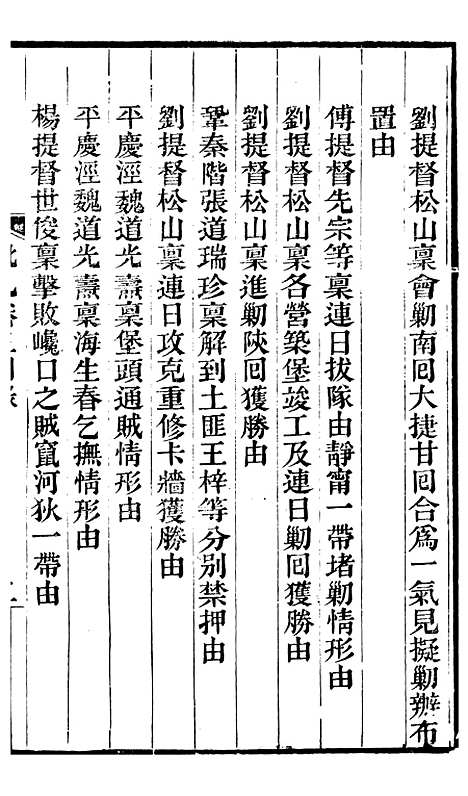 劉提督松山稟會勦南回大捷甘回合爲一氣見擬勦辦布
置由
傅提督先宗等稟連日拔隊由靜甯一帶堵勦情形由
劉提督松山稟各營築堡竣工及連日勦回獲勝由
劉提督松山稟進勦陝回獲勝由
鞏秦階張道瑞珍稟解到土匪王梓等分別禁押由
劉提督松山稟連日攻克重修卡牆獲勝由
平慶涇魏道光燾稟堡頭通賊情形由
平慶涇魏道光燾稟海生春乞撫情形由
楊提督世俊稟擊敗巉口之賊竄河狄一帶由